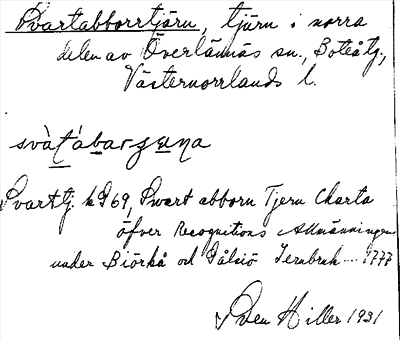 Svartabborrtjärn, tjärn i norra
delen av Överlännäs sn., Boteå tg.,
Västernorrlands l.
svàt́ábarʒɐna
Svarttj. k I 69, Swart abborn Tjern Charta
öfver Recognitions Allmänningen
under Biörkå och Sälsiö Jernbruk ... 1777
Sven Hiller 1931